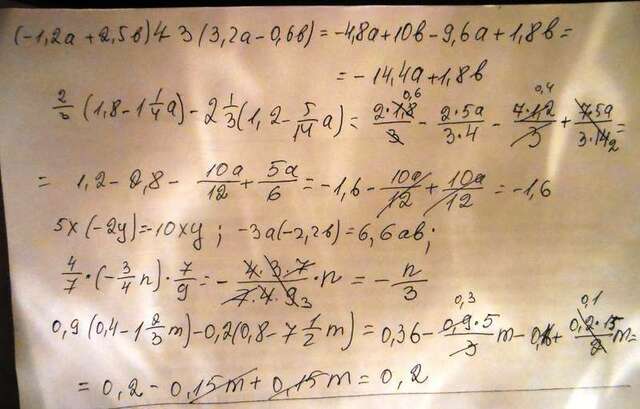 (-1,2a + 2,5в)4 - 3(3,2a - 0,6в) = -4,8a + 10в - 9,6a + 1,8в =
= -14,4a + 1,8в
2/3 (1,8 - 1 1/4 a) - 2 1/3 (1,2 - 5/14 a) = 2·1,8/3 - 2·5a/3·4 - 7·1,2/3 + 7·5a/3·14 =
0,6 0,4 2
= 1,2 - 2,8 - 10a/12 + 5a/6 = -1,6 - 10a/12 + 10a/12 = -1,6
5x(-2y) = -10xy ; -3a(-2,2в) = 6,6aв;
4/7 · (-3/4 n) · 7/9 = - 4·3·7/7·4·9 3 · n = - n/3
0,9(0,4 - 1 2/3 m) - 0,2(0,8 - 7 1/2 m) = 0,36 - 0,9·5/3 m - 0,16 + 0,2·15/2 m =
0,3 0,1
= 0,2 - 0,15m + 0,15m = 0,2